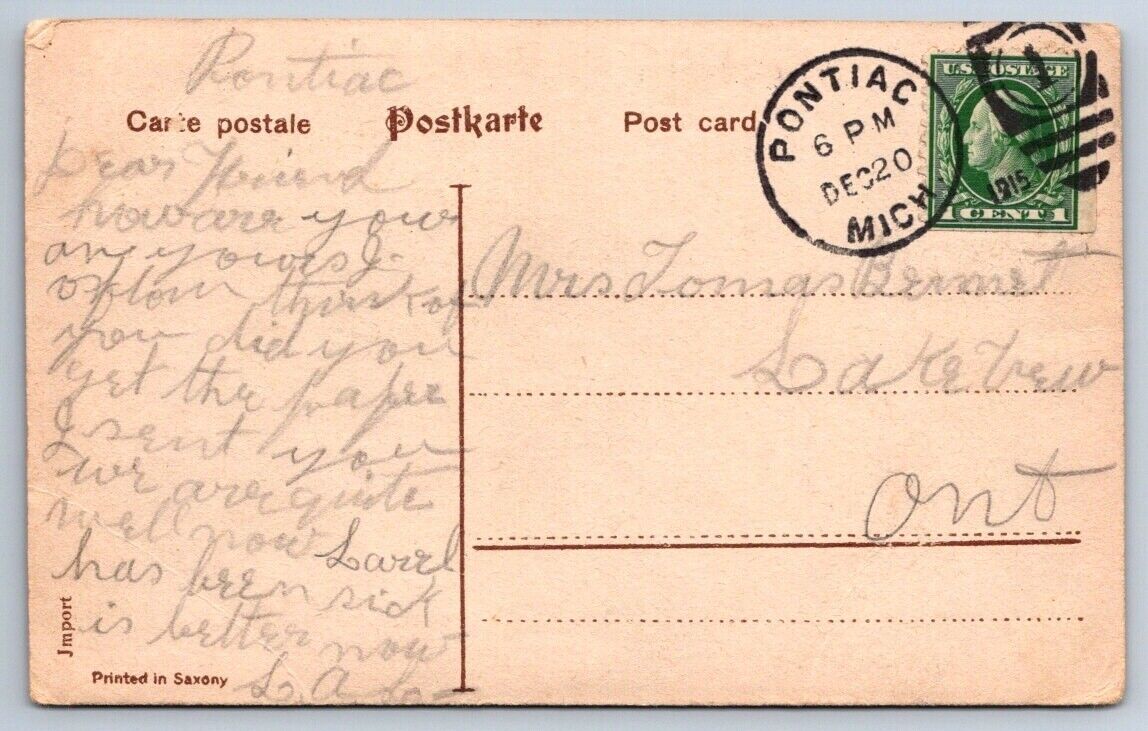 Pontiac
Carte postale Postkarte Post card
PONTIAC
6 PM
DEC 20
1915
MICH
U.S. POSTAGE
1 CENT 1
Dear Friend
how are you
an yours I
oftom think of
you did you
get the paper
I sent you
we are quite
well now Larel
has been sick
is better now
L. A.
Mrs Tomas Bernet
Lake View
Ont
Jmport
Printed in Saxony